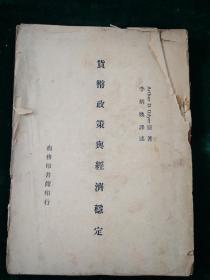 Arthur D. Gayer 原著
李炳煥譯述
貨幣政策與經濟穩定
商務印書館印行